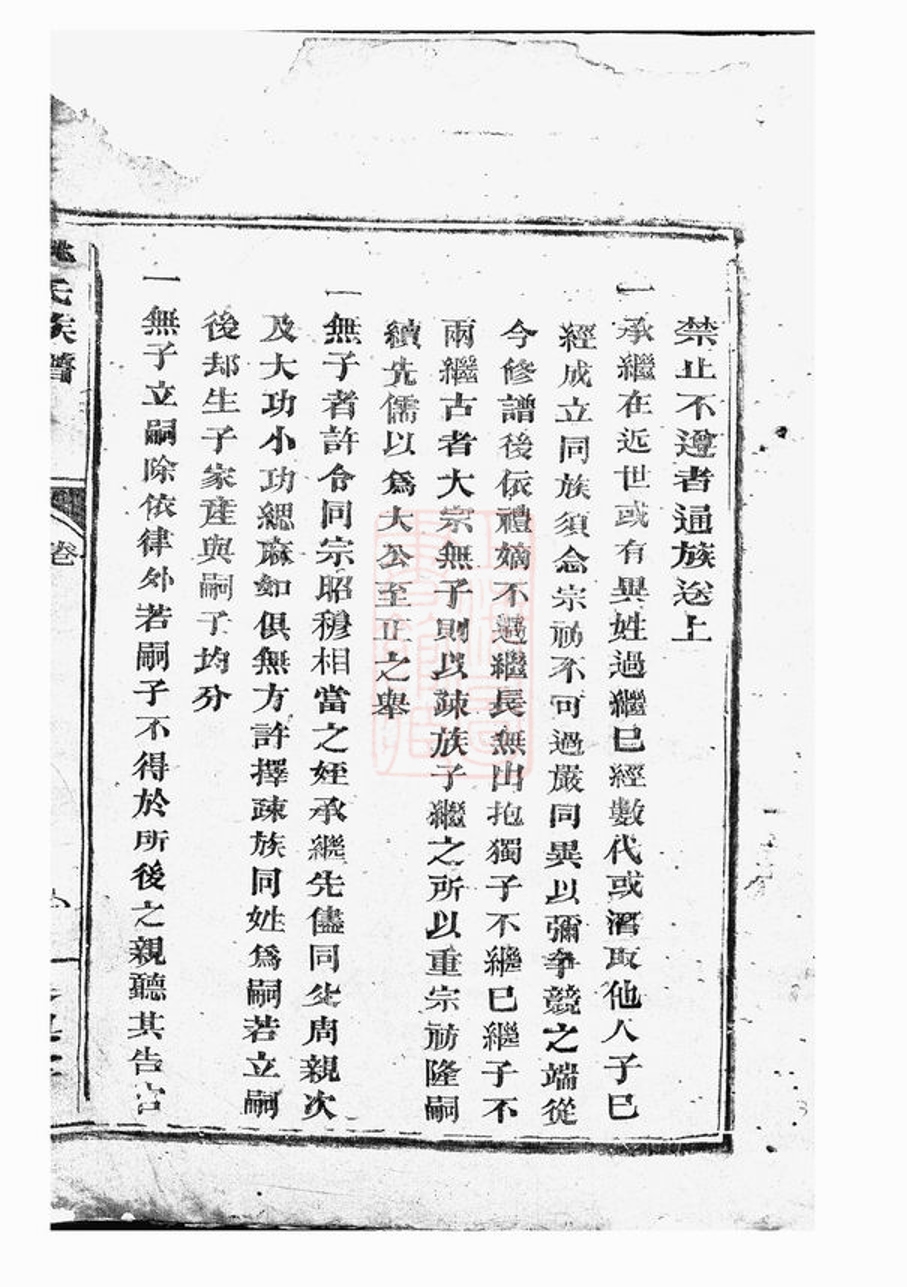 禁止不遵者通族送上
一承繼在近世或有異姓過繼巳經數代或濳取他人子巳
經成立同族須念宗祊不可過嚴同異以彌爭競之端從
今修譜後依禮嫡不過繼長無出抱獨子不繼巳繼子不
兩繼古者大宗無子則以疎族子繼之所以重宗祊隆嗣
續先儒以爲大公至正之舉
一無子者許令同宗昭穆相當之姪承繼先儘同父周親次
及大功小功緦麻如俱無方許擇疎族同姓爲嗣若立嗣
後却生子家產與嗣子均分
一無子立嗣除依律外若嗣子不得於所後之親聽其告官
氏族譜
卷